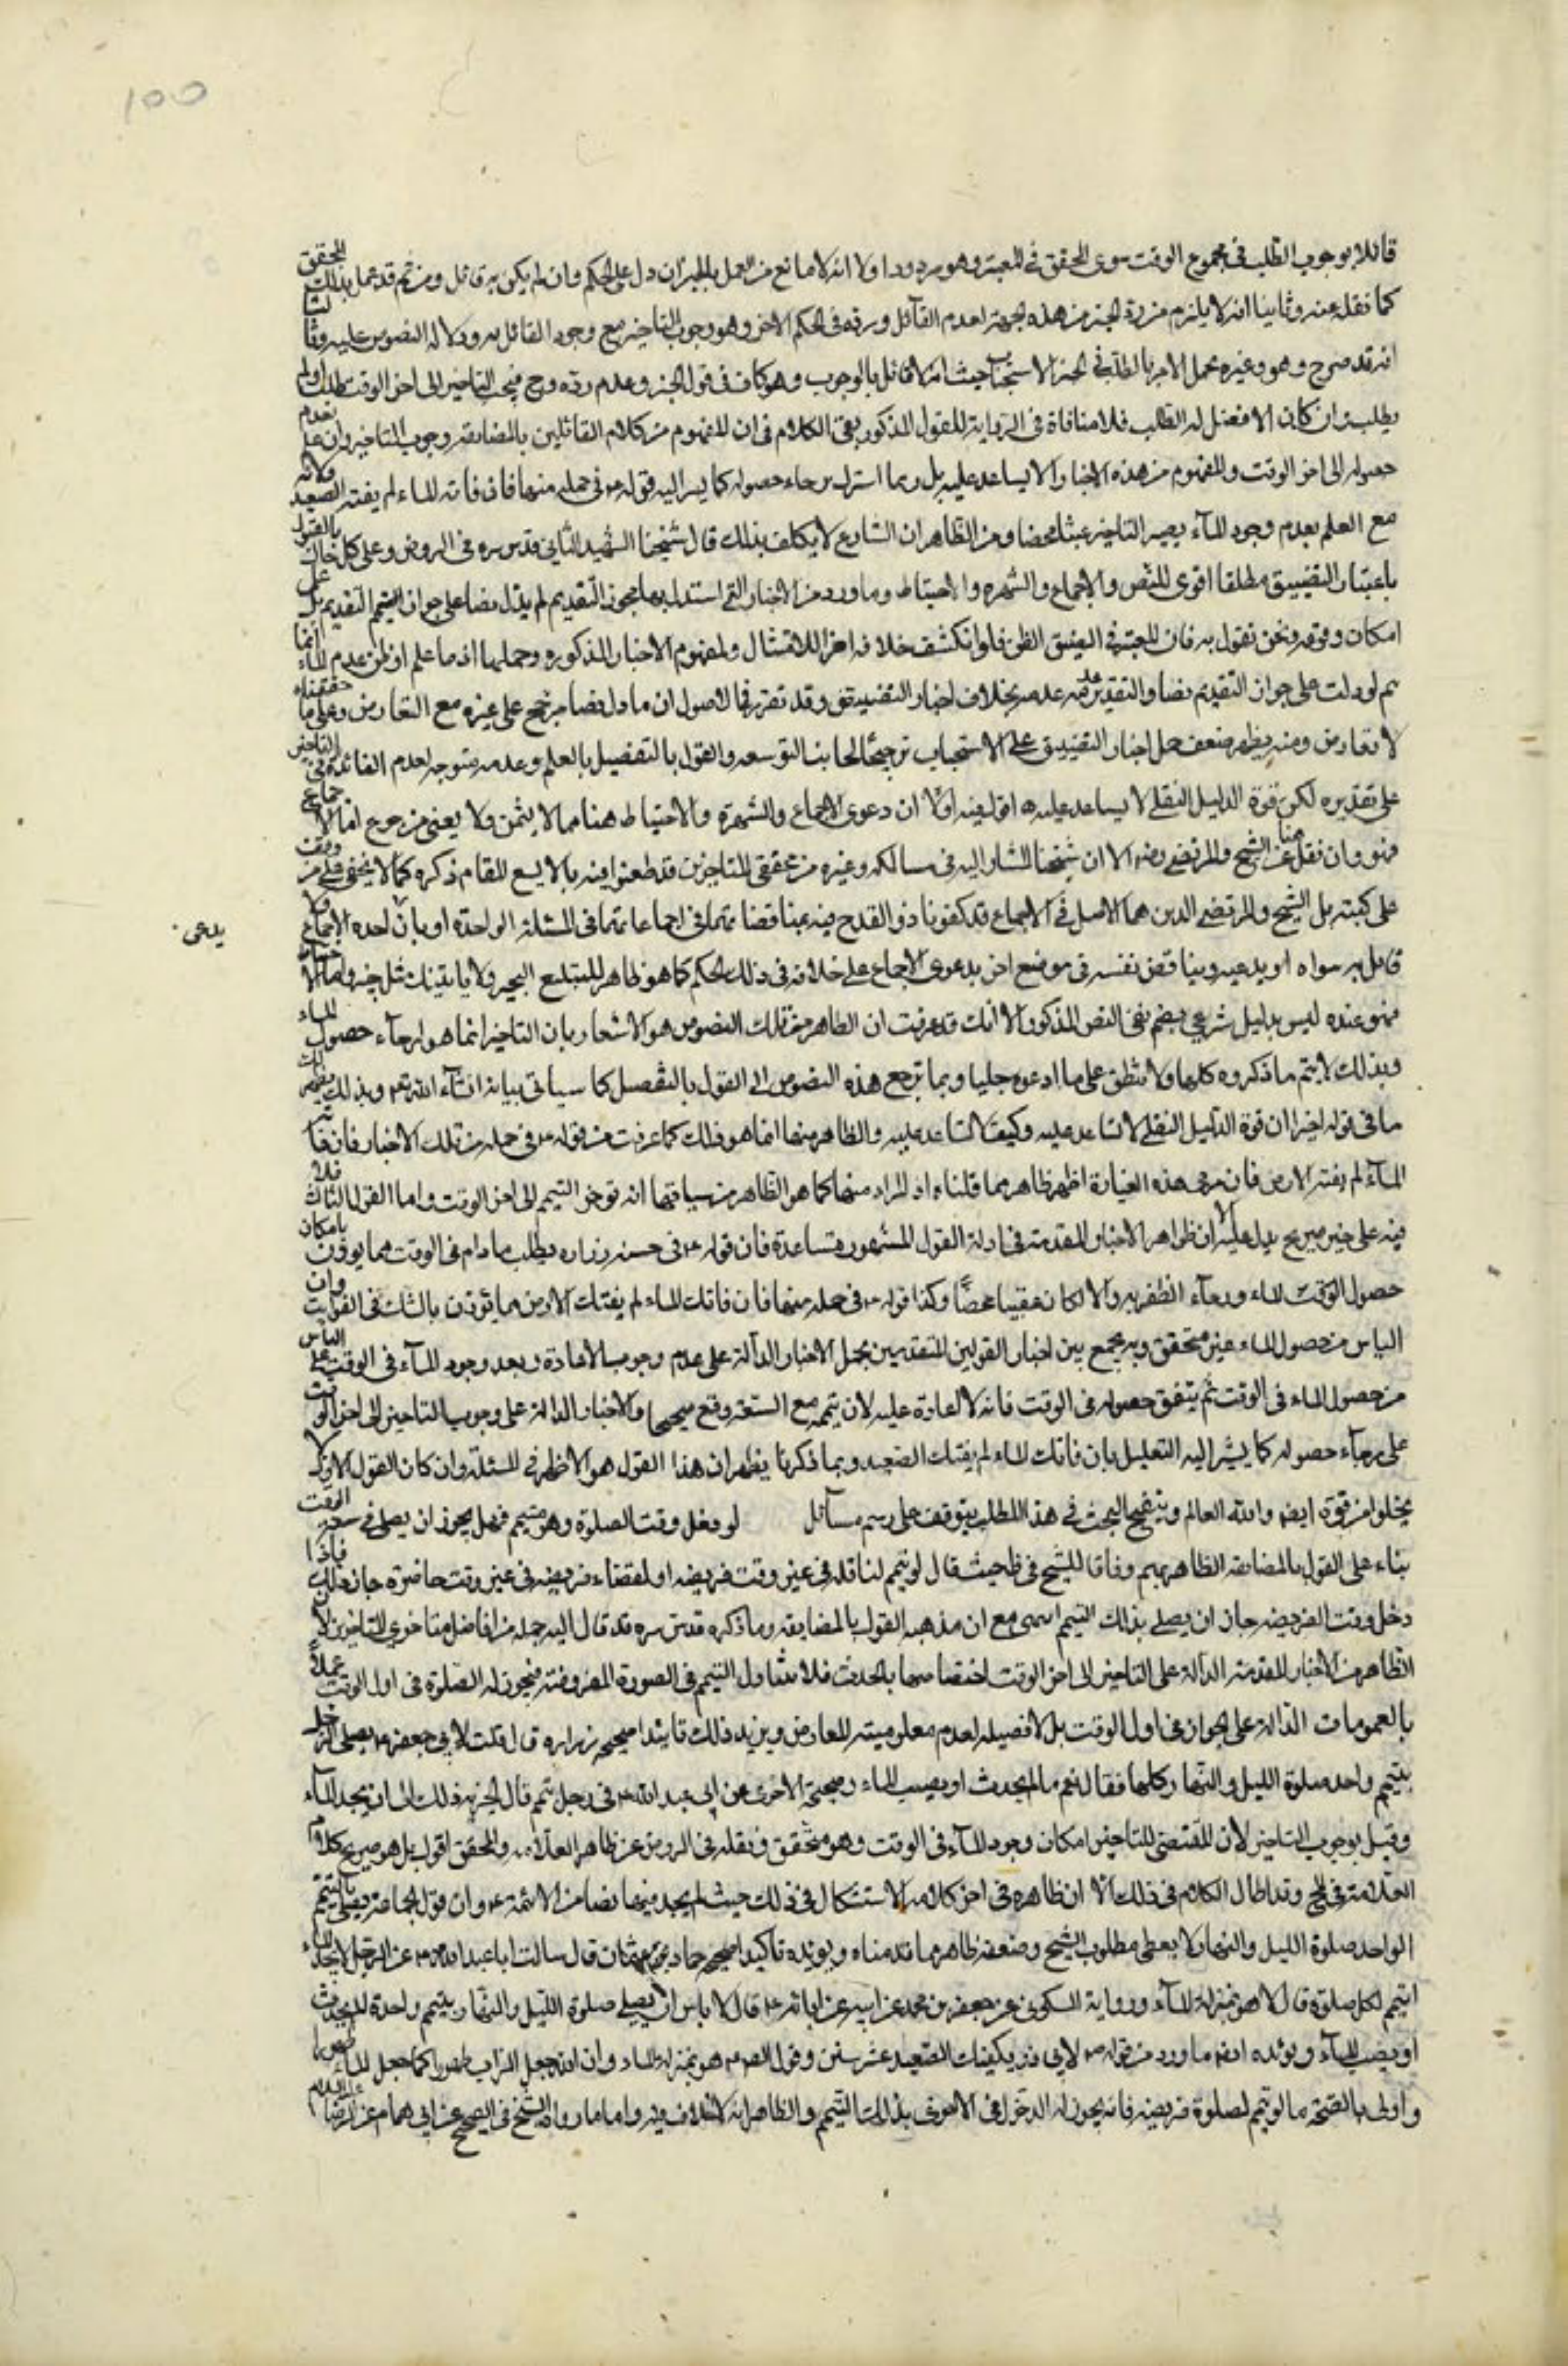 قائلا بوجوب الطلب فى مجموع الوقت سوى المحقق فى المعتبر وهو مردود اولا انه لا مانع من العمل بالخبر ان دل على الحكم وان لم يكن به قائل ومن ثم قد عمل بذلك المحقق
كما نقل عنه وثانيا انه لا يلزم من رد الخبر من هذه الجهة لعدم القائل ورده فى الحكم الاخر وهو وجوب التاخير مع وجود القائل به ودلالة النصوص عليه وثالثا
انه قد صرح هو وغيره بحمل الامر بالطلب فى الخبر الاستحباب حيث انه لا قائل بالوجوب وهو كاف فى قبول الخبر وعدم رده وح فيجب التاخير الى اخر الوقت طلب او لم
يطلب وان كان الافضل له الطلب فلا منافاة فى الرواية للقول المذكور بقى الكلام فى ان المفهوم من كلام القائلين بالمضايقه وجوب التاخير وان علم عدم
حصوله الى اخر الوقت والمفهوم من هذه الاخبار لا يساعد عليه بل ربما اشترط برجاء حصوله كما يشير اليه قوله ع فى جملة منها فان فاته الماء لم يفته الصعيد ولانه
مع العلم بعدم وجود الماء يصير التاخير عبثا محضا ومن الظاهر ان الشارع لا يكلف بذلك قال شيخنا الشهيد الثانى قدس سره فى الروض وعلى كل حال فالقول
باعتبار التضييق مطلقا اقوى للنص والاجماع والشهره والاحتياط وما ورد من الاخبار التى استدل بها مجوز التقديم لم يدل نصا على جواز التيمم التقديم بل على
امكان وقوعه ونحن نقول به فان المعتبر فى الضيق الظن فلو انكشف خلافه اجزأ للامتثال ولمفهوم الاخبار المذكوره وحملها اذا ما علم او ظن عدم الماء انما
يتم لو دلت على جواز التقديم نصا والتقدير عدمه بخلاف اخبار التضييق وقد تقرر فى الاصول ان ما دل نصا مرجح على غيره مع التعارض وعلى ما حققناه
لا تعارض ومنه يظهر ضعف حمل اخبار التضييق على الاستحباب ترجيحًا لجانب التوسعه والقول بالتفصيل بالعلم وعدمه متوجه لعدم الفائده فى التاخير
على تقديره لكن قوة الدليل النقلى لا يساعد عليه ه اقول فيه اولًا ان دعوى الاجماع والشهرة والاحتياط هنا مما لا يثمن ولا يغنى من جوع اما الاجماع
فهو وان نقل هنا عن الشيخ والمرتضى رض الا ان شيخنا المشار اليه فى مسالكه وغيره من محققى المتاخرين قد طعنوا فيه بما لا يسع المقام ذكره كما لا يخفى على من وقف
على كتبه بل الشيخ والمرتضى الذين هما الاصل فى الاجماع قد كفونا ذو القدح فيه بمناقضاتهما فى اجماعاتهما فى المسئلة الواحدة او بان لاحده الاجماع
يدعى
قائل به سواه او يدعيه ويناقض نفسه فى موضع اخر بدعوى الاجماع على خلافه فى ذلك الحكم كما هو ظاهر للمتتبع البحير ولا ياتينك مثل خبير
فهو عنده ليس بدليل شرعى بقى النص المذكور الا انك قد عرفت ان الظاهر من تلك النصوص هو الاشعار بان التاخير انما هو لرجاء حصول الماء
وبذلك لا يتم ما ذكروه كلها ولا تنطبق على ما ادعوه جليا وبما ترجع هذه النصوص الى القول بالتفصيل كما سياتى بيانه انشاء الله تعه وبذلك يظهر لك
ما فى قوله اخيرا ان قوة الدليل النقلى لا تساعد عليه وكيف لا تساعد عليه والظاهر منها انما هو ذلك كما عرفت من قوله ع فى جملة من تلك الاخبار فان فاته
الماء لم تفته الارض فان مرمى هذه العبارة اظهر ظاهر مما قلناه اذ المراد منها كما هو الظاهر من سياقها انه توخر التيمم الى اخر الوقت واما القول الثالث فلا
فيه على خبر صريح يدل عليه الا ان ظواهر الاخبار المتقدمة فى ادلة القول المشهور متساعدة فان قوله ع فى حسنه زراره يطلب ما دام فى الوقت مما يوذن بامكان
حصول الوقت للماء ورجاء الظفر به والا لكان عبثا محضًا وكذا قوله ع فى جملة منها فان فاتك الماء لم يفتك الارض مما تؤذن بالشك فى الفوات وان
الياس من حصول الماء غير متحقق وبه يجمع بين اخبار القولين المتقدمين بحمل الاخبار الدالة على عدم وجوب الاعادة وبعد وجود الماء فى الوقت على الياس
من حصول الماء فى الوقت ثم يتفق حصوله فى الوقت فانه لا اعادة عليه لان تيممه مع السعة وقع صحيحا والاخبار الدالة على وجوب التاخير الى اخر الوقت
على رجاء حصوله كما يشير اليه التعليل بان فاتك الماء لم يفتك الصعيد وبما ذكرنا يظهر ان هذا القول هو الاظهر فى المسئلة وان كان القول الاول لا
يخلو من قوة ايضا والله العالم وتنقيح البحث فى هذا المطلب يتوقف على رسم مسائل لو دخل وقت الصلوة وهو متيمم فهل يجوز ان يصلى فى سعة الوقت
بناء على القول بالمضايقه الظاهر نعم وفاقا للشيخ فى ط حيث قال لو تيمم لنافله فى غير وقت فريضه او لقضاء فريضه فى غير وقت حاضرة جاز ذلك فاذا
دخل وقت الفريضه جاز ان يصلى بذلك التيمم انتهى مع ان مذهبه القول بالمضايقه وما ذكره قدس سره قد قال اليه جمله من افاضل متاخرى المتاخرين لان
الظاهر من الاخبار المتقدمة الدالة على التاخير الى اخر الوقت اختصاصها بالمحدث فلا تتناول التيمم فى الصورة المفروضة فيجوز له الصلوة فى اول الوقت عملًا
بالعمومات الدالة على الجواز فى اول الوقت بل لافضيله لعدم معلومية المعارض ويزيد ذلك تاييدا صحيحه زراره قال قلت لابى جعفر ع يصلى الرجل
بتيمم واحد صلوة الليل والنهار كلها فقال نعم ما لم يحدث او يصيب الماء وصحيحة الاخرى عن ابى عبد الله ع فى رجل تيمم قال يجزيه ذلك الى ان يجد الماء
وقيل بوجوب التاخير لان المقتضى للتاخير امكان وجود الماء فى الوقت وهو متحقق ونقله فى الروض عن ظاهر العلامه والمحقق اقول بل هو صريح كلام
العلامة فى المخ وقد اطال الكلام فى ذلك الا ان ظاهره فى اخر كلامه الاستشكال فى ذلك حيث لم يجد فيها نصا من الائمة ع وان قول الجماعة يصلى بالتيمم
الواحد صلوة الليل والنهار لا يعطى مطلوب الشيخ وضعفه ظاهر مما قدمناه ويؤيده تاكيدا صحيح حماد بن عثمان قال سالت ابا عبد الله ع عن الرجل لا يجد الماء
ايتيمم لكل صلوة قال لا هو بمنزلة الماء ورواية السكونى عن جعفر بن محمد عن ابيه عن ابائه ع قال لا باس ان يصلى صلوة الليل والنهار بتيمم واحدة ما لم يحدث
او يصيب الماء ويؤيده ايضا ما ورد من قوله ص لابى ذر يكفيك الصعيد عشر سنين وقول الص ع هو بمنزلة الماء وان الله جعل التراب طهورا كما جعل الماء طهورا
واولى بالصحة ما لو تيمم لصلوة فريضه فانه يجوز له الدخول فى الاخرى بذلك التيمم والظاهر انه لا خلاف فيه واما ما رواه الشيخ فى الصحيح عن ابى همام عن الرضا عليه السلام